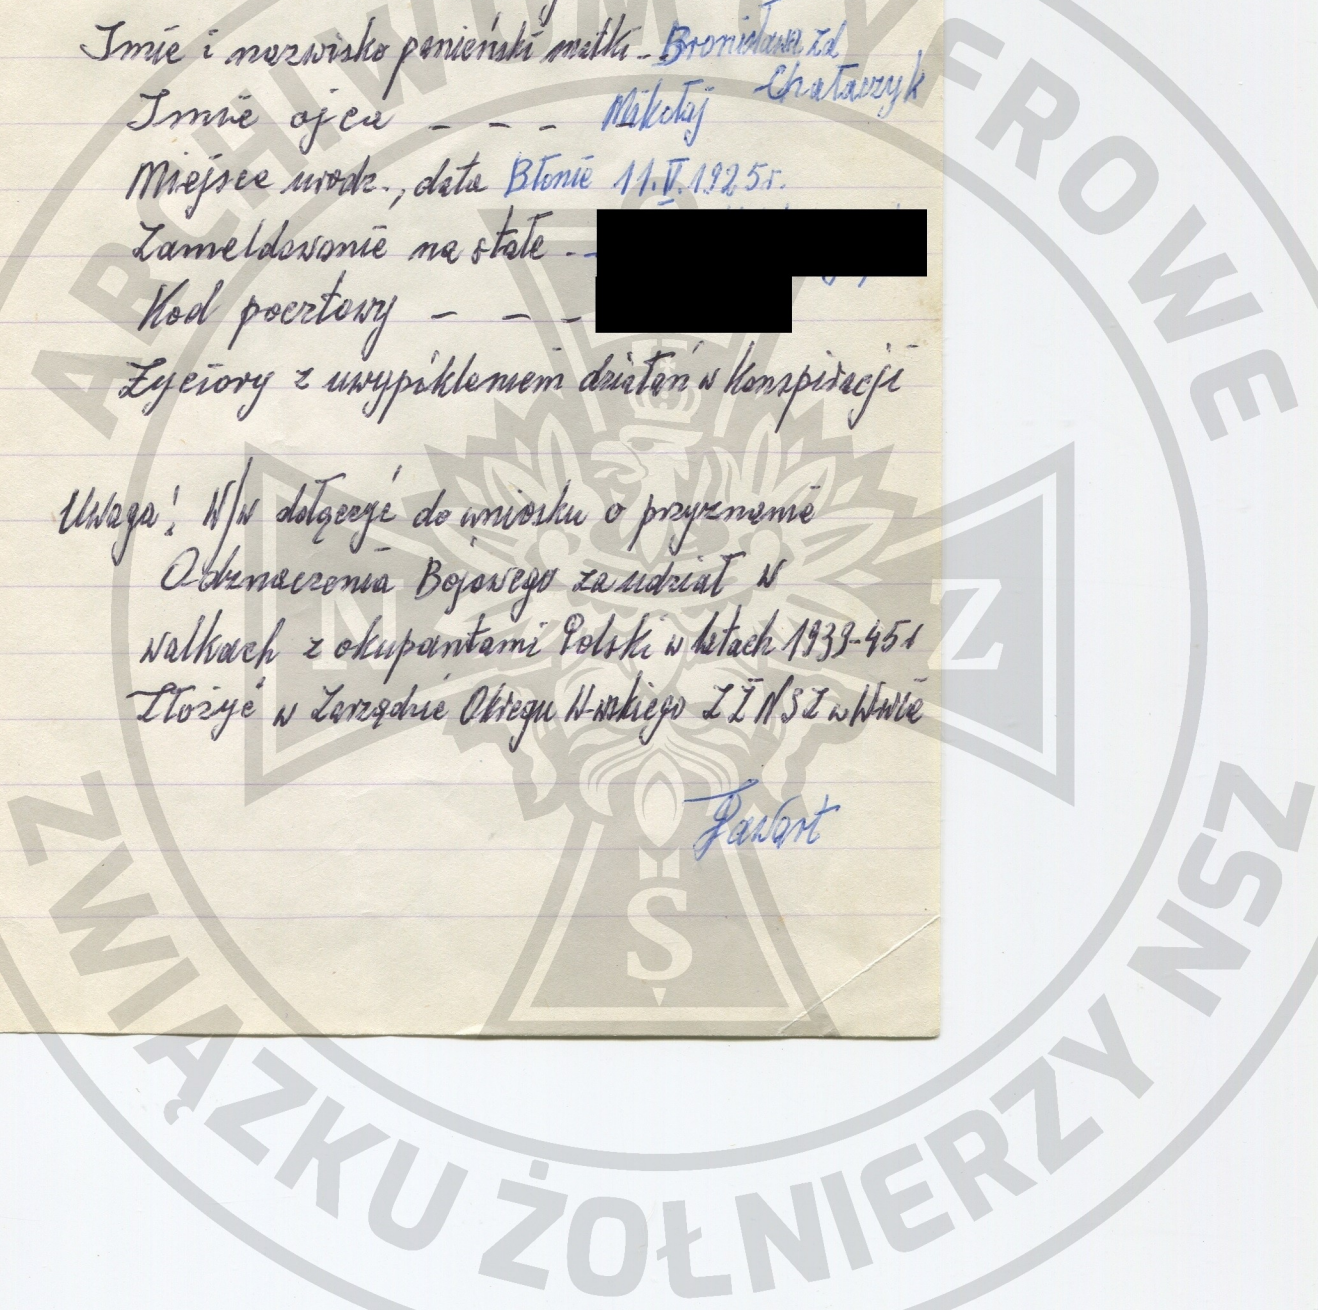 Imię i nazwisko panieński matki - Bronisława zd
Chałaczyk
Imię ojca - - - Mikołaj
Miejsce urodz., data Błonie 11.V.1925r.
Zameldowanie na stałe - -
Kod pocztowy - - -
Życiory z uwypukleniem działań w Konspiracji
Uwaga! W/w dołączyć do wniosku o przyznanie
Odznaczenia Bojowego za udział w
walkach z okupantami Polski w latach 1939-45r
Złożyć w Zarządzie Okręgu W-wskiego ZŻNSZ w W-wie
ARCHIWUM CYFROWE
ZWIĄZKU ŻOŁNIERZY NSZ
N Z
S